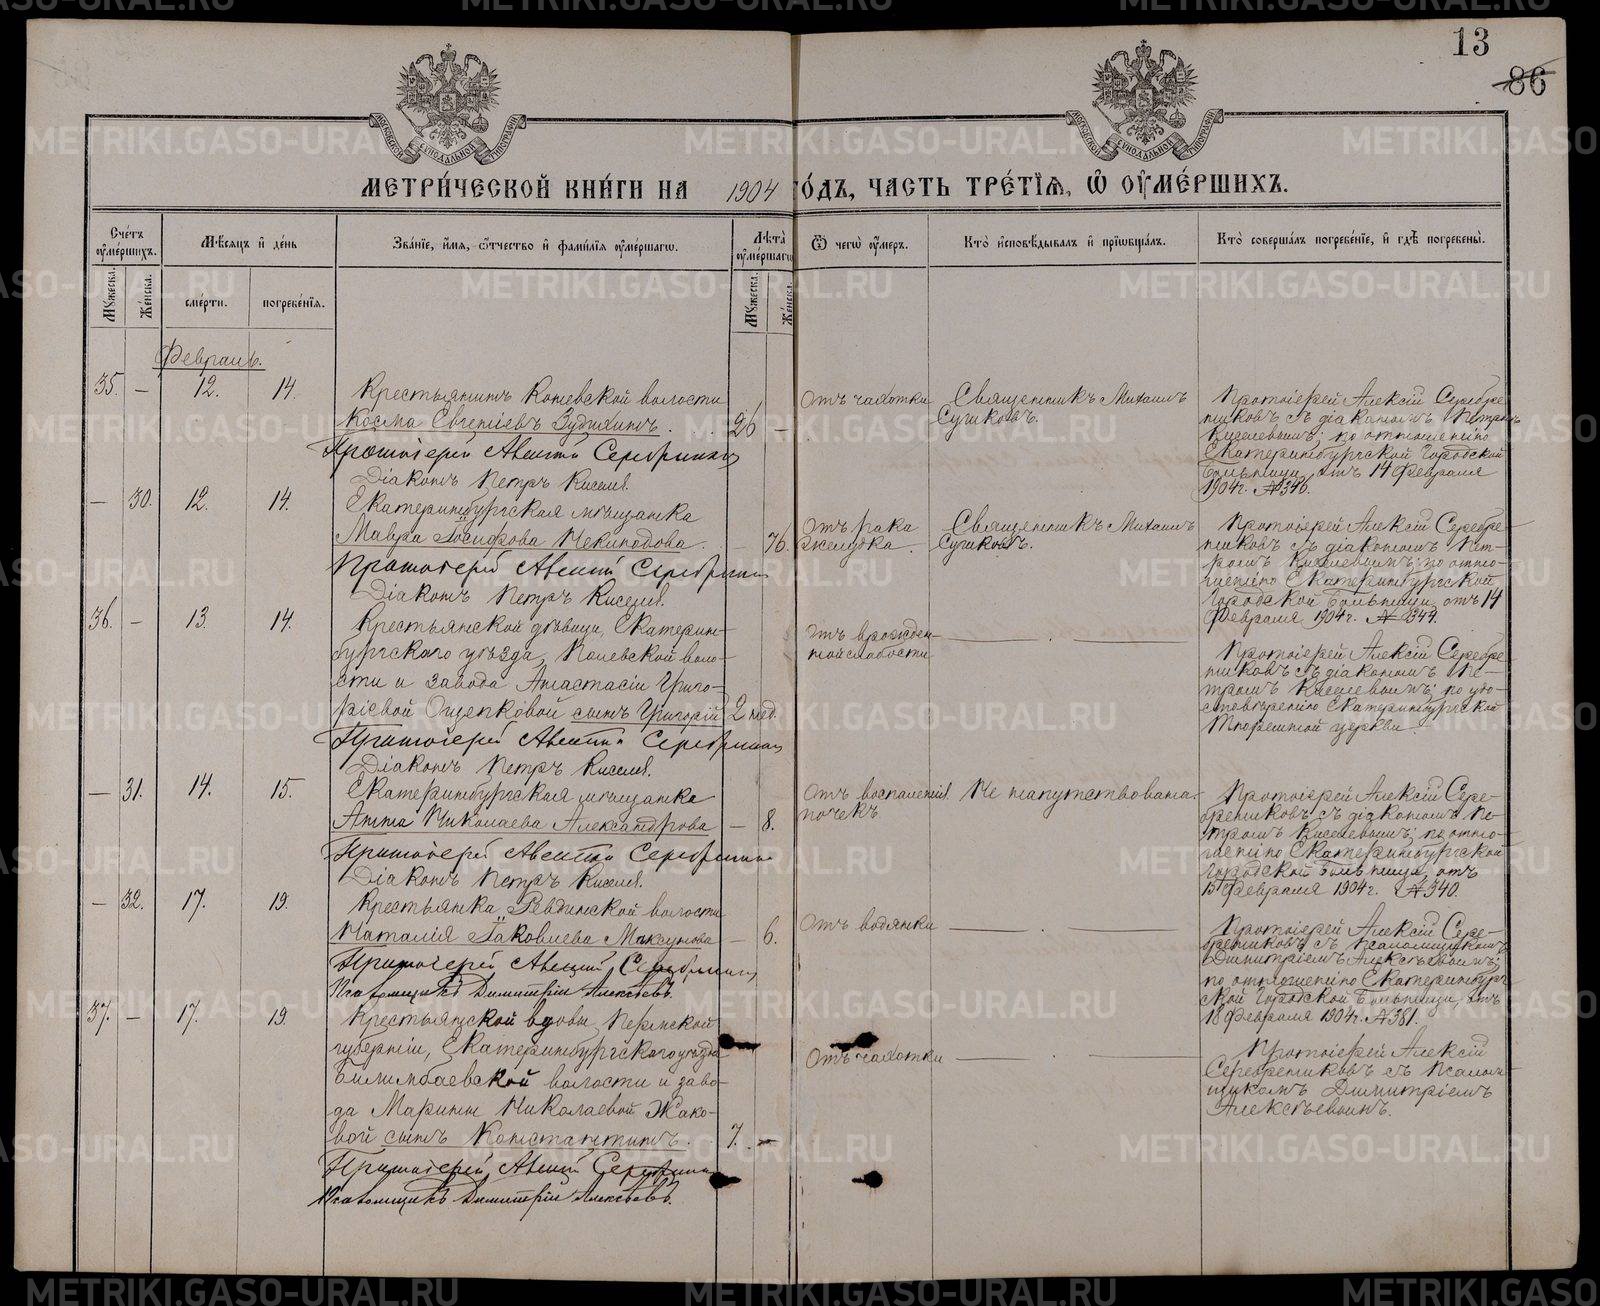 13
86
МЕТРИ́ЧЕСКОЙ КНИ́ГИ НА 1904 ГО́ДЪ, ЧАСТЬ ТРЕ́ТІѦ, Ѽ ОУМЕ́РШИХЪ.
Сче́тъ оумершихъ.
Мужеска.
Же́нска.
Мѣсяцъ и де́нь
сме́рти.
погребе́нїя.
Зва́нїе, имя, отчество и фами́лїя оуме́ршагѡ.
Лѣта̀ оуме́ршагѡ
Мужеска.
Же́нска.
Ѿ чегѡ̀ оу́меръ.
Кто̀ исповѣдывалъ и прїѡбща́лъ.
Кто̀ соверша́лъ погребе́нїе, и гдѣ̀ погребены̀.
Февраль.
35. — 12. 14.
Крестьянинъ Колевской волости
Косма Евгеніевъ Зудихинъ. 26 —
Протоіерей Алексій Серебренников
Діаконъ Петръ Киселев.
Отъ чахотки
Священникъ Михаилъ
Сушковъ.
Протоіерей Алексій Серебре-
нниковъ съ діакономъ Петромъ
Киселевымъ; по отношенію
Екатеринбургской Городской
Больницы, отъ 14 Февраля
1904 г. № 346.
— 30. 12. 14.
Екатеринбургская мѣщанка
Мавра Іосифова Чекина­дова. — 76.
Протоіерей Алексій Серебренников
Діаконъ Петръ Киселев.
Отъ рака
желудка.
Священникъ Михаилъ
Сушковъ.
Протоіерей Алексій Серебре-
нниковъ съ діакономъ Пет-
ромъ Киселевымъ; по отно-
шенію Екатеринбургской
Городской Больницы, отъ 14
Февраля 1904 г. № 344.
36. — 13. 14.
Крестьянской дѣвицы, Екатерин-
бургскаго уѣзда, Полевской воло-
сти и завода Анастасіи Григо-
рьевой Ощепковой сынъ Григорій 2 нед.
Протоіерей Алексій Серебренников
Діаконъ Петръ Киселев.
Отъ врожден-
ной слабости
Протоіерей Алексій Серебре-
нниковъ съ діакономъ Пе-
тромъ Киселевымъ; по удо-
стовѣренію Екатеринбургской
Тюремной церкви.
— 31. 14. 15.
Екатеринбургская мѣщанка
Анна Николаева Александрова — 8.
Протоіерей Алексій Серебренников
Діаконъ Петръ Киселев.
Отъ воспаленія
почекъ
Не напутствована.
Протоіерей Алексій Сере-
бренниковъ съ діакономъ Пе-
тромъ Киселевымъ; по отно-
шенію Екатеринбургской
Городской Больницы, отъ
15 Февраля 1904 г. № 340.
— 32. 17. 19.
Крестьянка Ревдинской волости
Наталія Іаковлева Максунова — 6.
Протоіерей Алексій Серебренников
Псаломщикъ Димитрій Алексѣевъ.
Отъ водянки
Протоіерей Алексій Сере-
бренниковъ съ псаломщикомъ
Димитріемъ Алексѣевымъ;
по отношенію Екатеринбург-
ской Городской Больницы, отъ
18 Февраля 1904 г. № 381.
37. — 17. 19.
Крестьянской вдовы, Пермской
губерніи, Екатеринбургскаго уѣзда
Билимбаевской волости и заво-
да Марины Николаевой Жако-
вой сынъ Константинъ. 7. —
Протоіерей Алексій Серебренников
Псаломщикъ Димитрій Алексѣевъ.
Отъ чахотки
Протоіерей Алексій
Серебренниковъ съ псалом-
щикомъ Димитріемъ
Алексѣевымъ.
METRIKI.GASO-URAL.RU